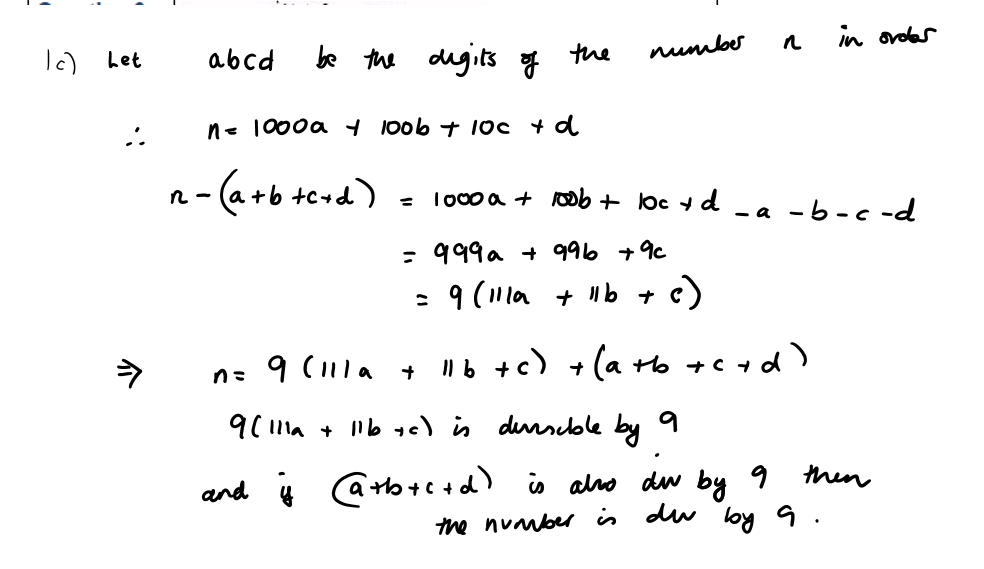 1c) Let abcd be the digits of the number n in order
∴ n = 1000a + 100b + 10c + d
n - (a + b + c + d) = 1000a + 100b + 10c + d - a - b - c - d
= 999a + 99b + 9c
= 9 (111a + 11b + c)
⇒ n = 9 (111a + 11b + c) + (a + b + c + d)
9(111a + 11b + c) is divisible by 9
and if (a+b+c+d) is also div by 9 then
the number is div by 9.